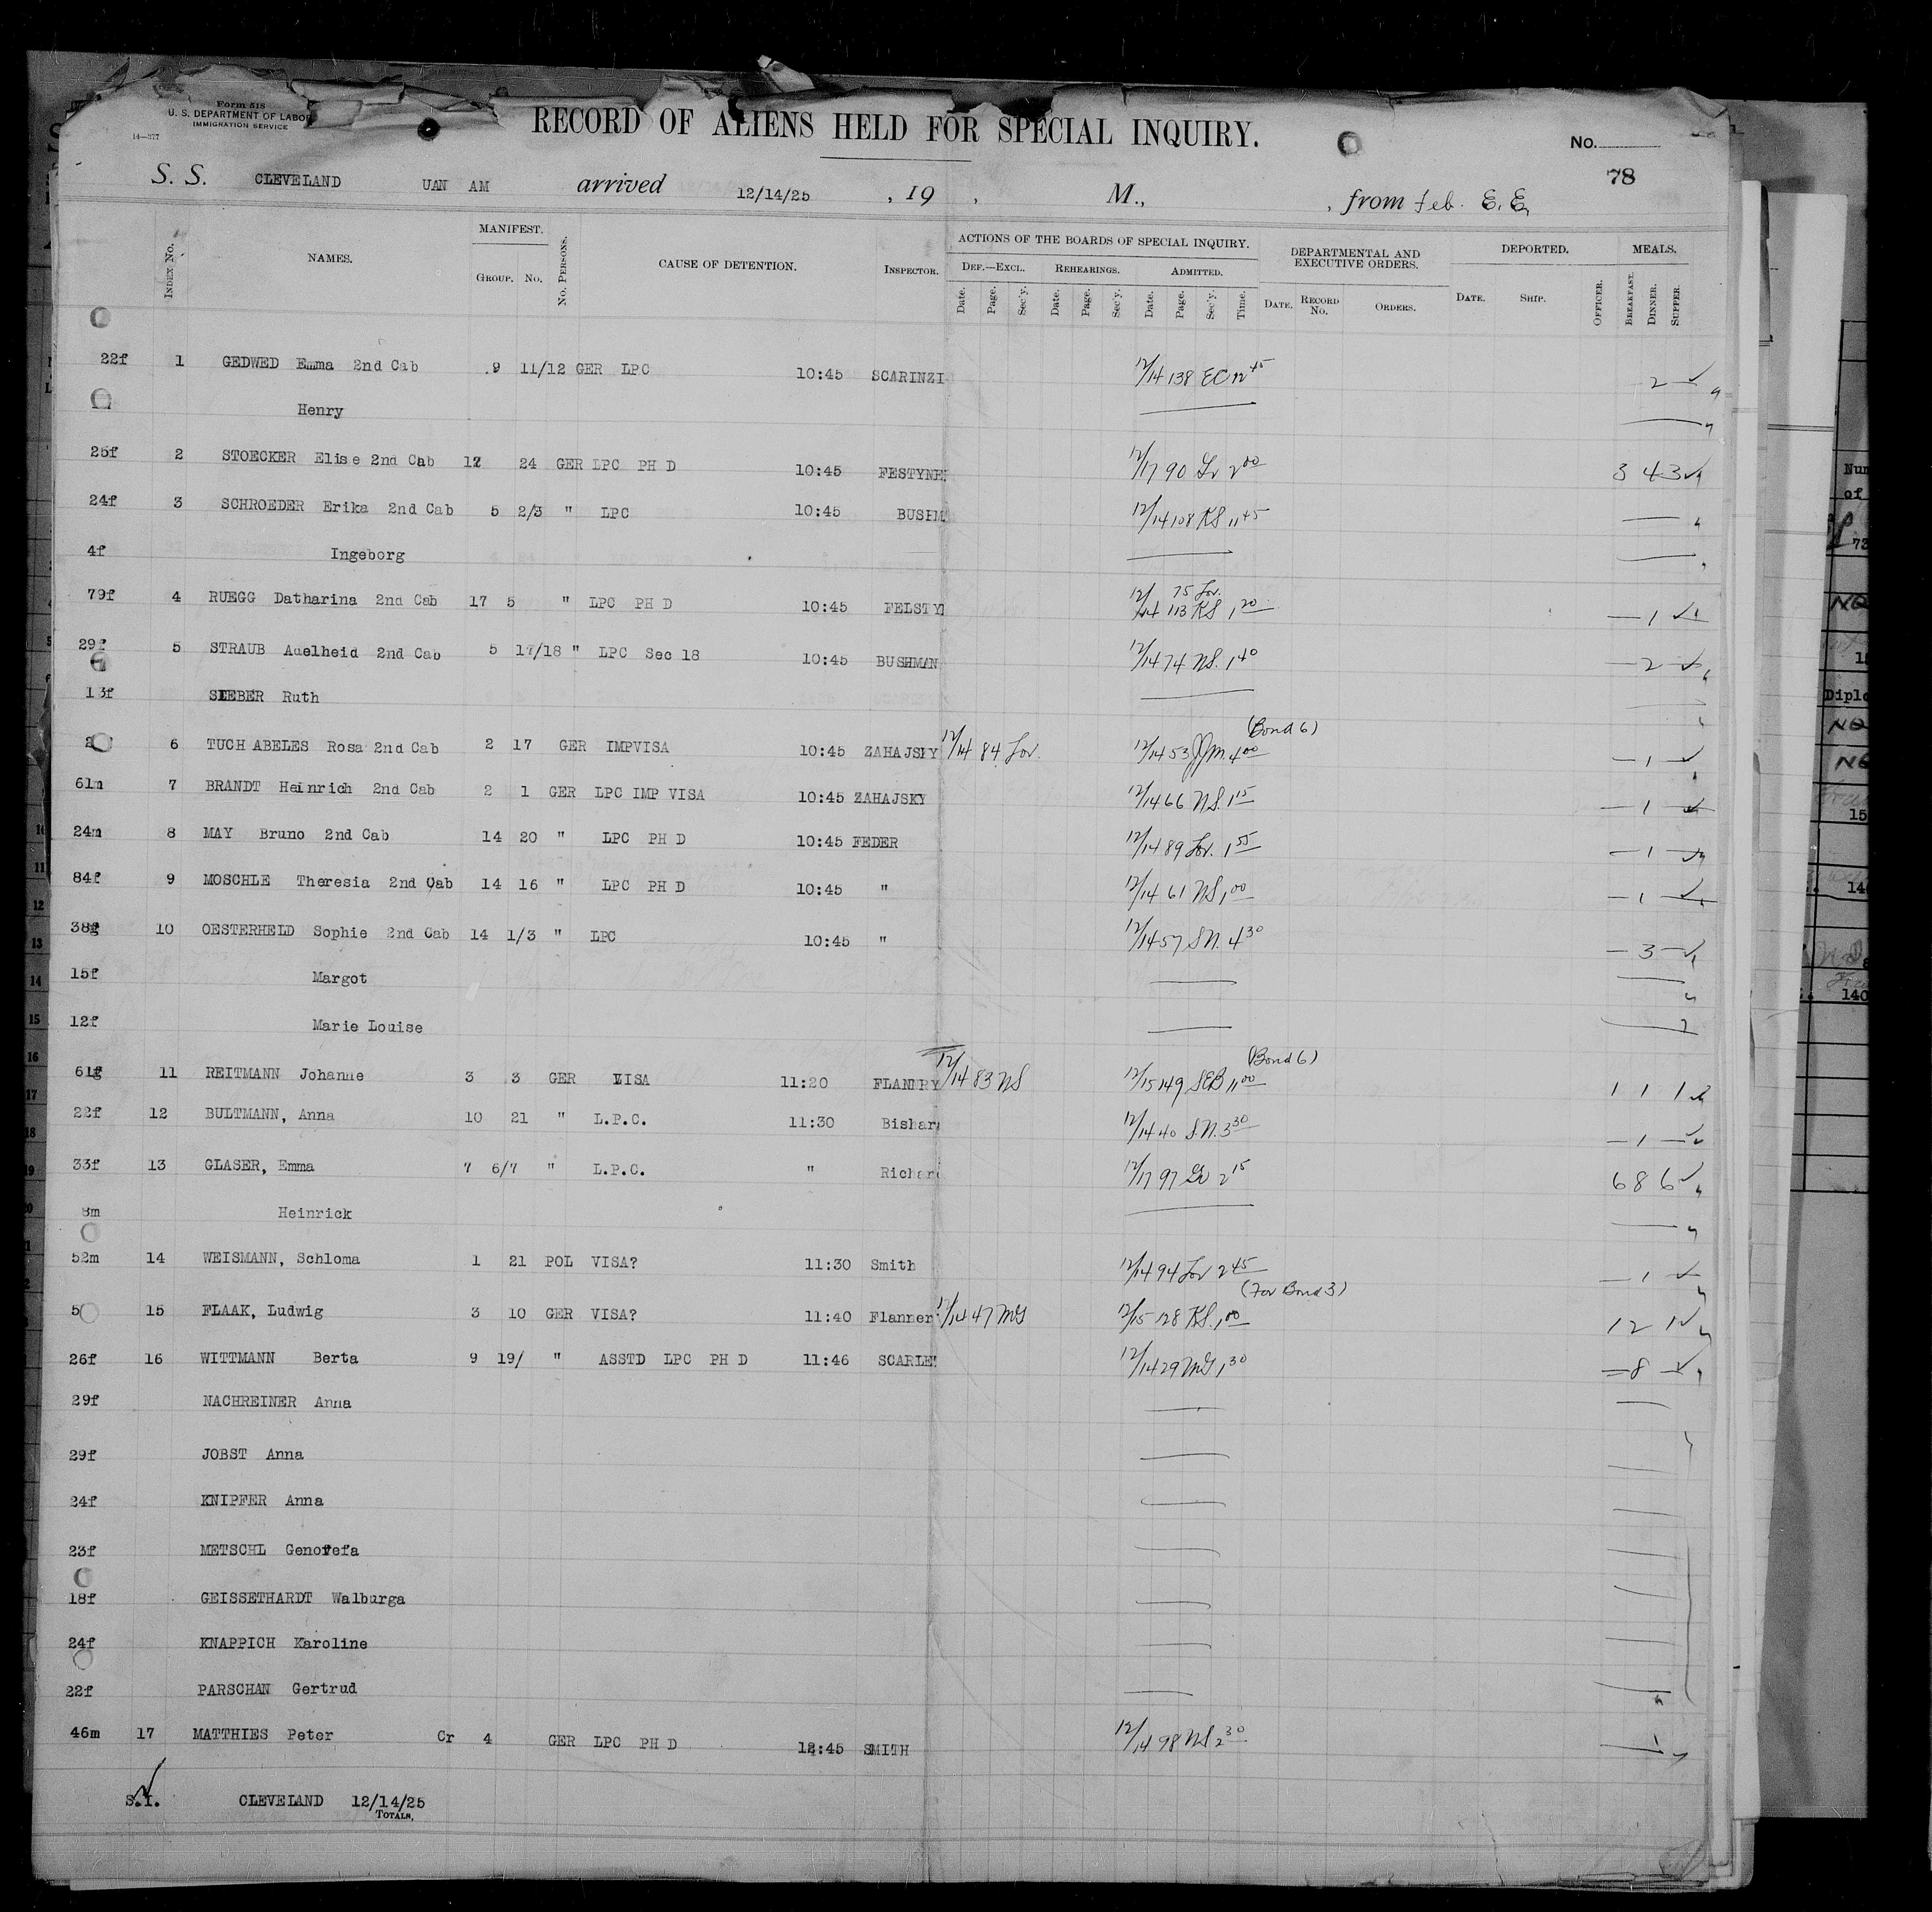 Form 518
U. S. DEPARTMENT OF LABOR
IMMIGRATION SERVICE
14—377
RECORD OF ALIENS HELD FOR SPECIAL INQUIRY.
No.
78
S. S. CLEVELAND UAN AM arrived 12/14/25 , 19 , M., , from Feb. E. E.
INDEX No. NAMES. MANIFEST. GROUP. No. No. PERSONS. CAUSE OF DETENTION. INSPECTOR. ACTIONS OF THE BOARDS OF SPECIAL INQUIRY. DEPARTMENTAL AND EXECUTIVE ORDERS. DEPORTED. MEALS.
DEF.—EXCL. REHEARINGS. ADMITTED.
Date. Page. Sec'y. Date. Page. Sec'y. Date. Page. Sec'y. Time. DATE. RECORD No. ORDERS. DATE. SHIP. OFFICER. BREAKFAST. DINNER. SUPPER.
22f 1 GEDWED Emma 2nd Cab 9 11/12 GER LPC 10:45 SCARINZI 12/14 138 EC 12 45 2
Henry
25f 2 STOECKER Elise 2nd Cab 24 GER LPC PH D 10:45 FESTYNE 12/17 90 2 00 3 4 3
24f 3 SCHROEDER Erika 2nd Cab 5 2/3 " LPC 10:45 BUSHM 12/14 108 KS 11 45
4f Ingeborg
79f 4 RUEGG Datharina 2nd Cab 17 5 " LPC PH D 10:45 FELSTY 12/14 75 Lov. 113 KS 1 20 1
29f 5 STRAUB Auelheid 2nd Cab 5 17/18 " LPC Sec 18 10:45 BUSHMAN 12/14 74 NS. 1 40 2
13f SIEBER Ruth
(Bond 6)
6 TUCH ABELES Rosa 2nd Cab 2 17 GER IMPVISA 10:45 ZAHAJSKY 12/14 84 Lov. 12/14 53 JJM. 4 00 1
61m 7 BRANDT Heinrich 2nd Cab 2 1 GER LPC IMP VISA 10:45 ZAHAJSKY 12/14 66 NS. 1 15 1
24m 8 MAY Bruno 2nd Cab 14 20 " LPC PH D 10:45 FEDER 12/14 89 Lov. 1 55 1
84f 9 MOSCHLE Theresia 2nd Cab 14 16 " LPC PH D 10:45 " 12/14 61 NS 1 00 1
38f 10 OESTERHELD Sophie 2nd Cab 14 1/3 " LPC 10:45 " 12/14 57 S.N. 4 30 3
15f Margot
12f Marie Louise
(Bond 6)
61f 11 REITMANN Johanne 3 3 GER VISA 11:20 FLANNRY 12/14 83 NS 12/15 149 SEB 11 00 1 1 1
22f 12 BULTMANN, Anna 10 21 " L.P.C. 11:30 Bishar 12/14 40 S.N. 3 30 1
33f 13 GLASER, Emma 7 6/7 " L.P.C. " Richar 12/17 97 2 15 6 8 6
8m Heinrick
52m 14 WEISMANN, Schloma 1 21 POL VISA? 11:30 Smith 12/14 94 Lov 2 45 1
(For Bond 3)
5 15 FLAAK, Ludwig 3 10 GER VISA? 11:40 Flanner 12/14 47 MG 12/15 128 KS. 1 00 1 2 1
26f 16 WITTMANN Berta 9 19/ " ASSTD LPC PH D 11:46 SCARLE 12/14 29 MG 1 30 8
29f NACHREINER Anna
29f JOBST Anna
24f KNIPFER Anna
23f METSCHL Genofefa
18f GEISSETHARDT Walburga
24f KNAPPICH Karoline
22f PARSCHAN Gertrud
46m 17 MATTHIES Peter Cr 4 GER LPC PH D 12:45 SMITH 12/14 98 NS 2 30 1
S.I. CLEVELAND 12/14/25
TOTALS,